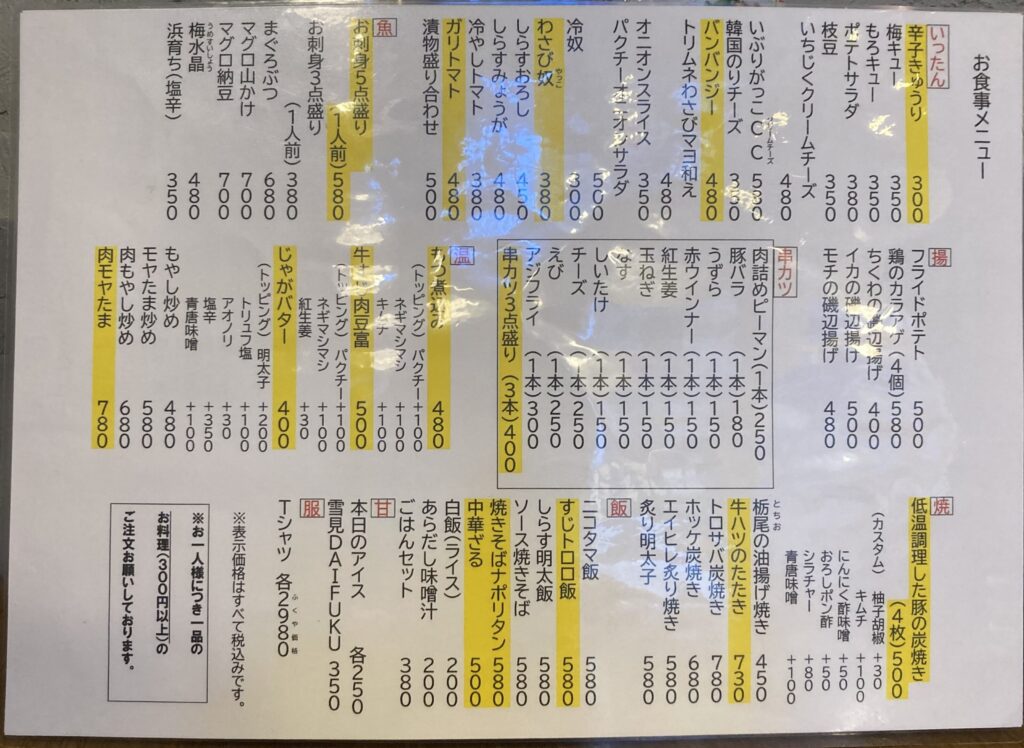 お食事メニュー
いったん
辛子きゅうり 300
梅キュー 350
もろキュー 350
ポテトサラダ 380
枝豆 350
いちじくクリームチーズ 480
いぶりがっこCC 530
韓国のりチーズ 350
バンバンジー 480
トリムネわさびマヨ和え 480
オニオンスライス 350
パクチーオニオンサラダ 500
冷奴 300
わさび奴 380
やっこ
しらすおろし 450
しらすみょうが 480
冷やしトマト 380
ガリトマト 480
漬物盛り合わせ 500
魚
お刺身5点盛り
(1人前)580
お刺身3点盛り
(1人前)380
まぐろぶつ 680
マグロ山かけ 700
マグロ納豆 700
うめすいしょう
梅水晶 480
浜育ち(塩辛) 350
揚
フライドポテト 500
鶏のカラアゲ(4個)580
ちくわの磯辺揚げ 400
イカの磯辺揚げ 500
モチの磯辺揚げ 480
串カツ
肉詰めピーマン(1本)250
豚バラ (1本)180
うずら (1本)150
赤ウインナー(1本)150
紅生姜 (1本)150
玉ねぎ (1本)150
なす (1本)150
しいたけ (1本)150
チーズ (1本)250
えび (1本)250
アジフライ (1本)300
串カツ3点盛り(3本)400
温
もつ煮込み 480
(トッピング) パクチー+100
ネギマシマシ +100
キムチ +100
牛すじ肉豆富 500
(トッピング) パクチー+100
ネギマシマシ +100
紅生姜 +30
じゃがバター 400
(トッピング) 明太子 +200
トリュフ塩 +100
アオノリ +30
塩辛 +350
青唐味噌 +100
もやし炒め 480
モヤたま炒め 580
肉もやし炒め 680
肉モヤたま 780
焼
低温調理した豚の炭焼き
(4枚)500
(カスタム) 柚子胡椒 +30
キムチ +100
にんにく酢味噌 +50
おろしポン酢 +50
シラチャー +80
青唐味噌 +100
とちお
栃尾の油揚げ焼き 450
牛ハツのたたき 730
トロサバ炭焼き 780
ホッケ炭焼き 680
エイヒレ炙り焼き 580
炙り明太子 580
飯
ニコタマ飯 580
すじトロ飯 580
しらす明太飯 580
ソース焼きそば 580
焼きそばナポリタン 580
中華ざる 500
白飯(ライス) 200
あらだし味噌汁 200
ごはんセット 380
甘
本日のアイス 各250
雪見DAIFUKU 350
服
ふくや価格
Tシャツ 各2980
※表示価格はすべて税込みです。
※お一人様につき一品の
お料理(300円以上)の
ご注文お願いしております。